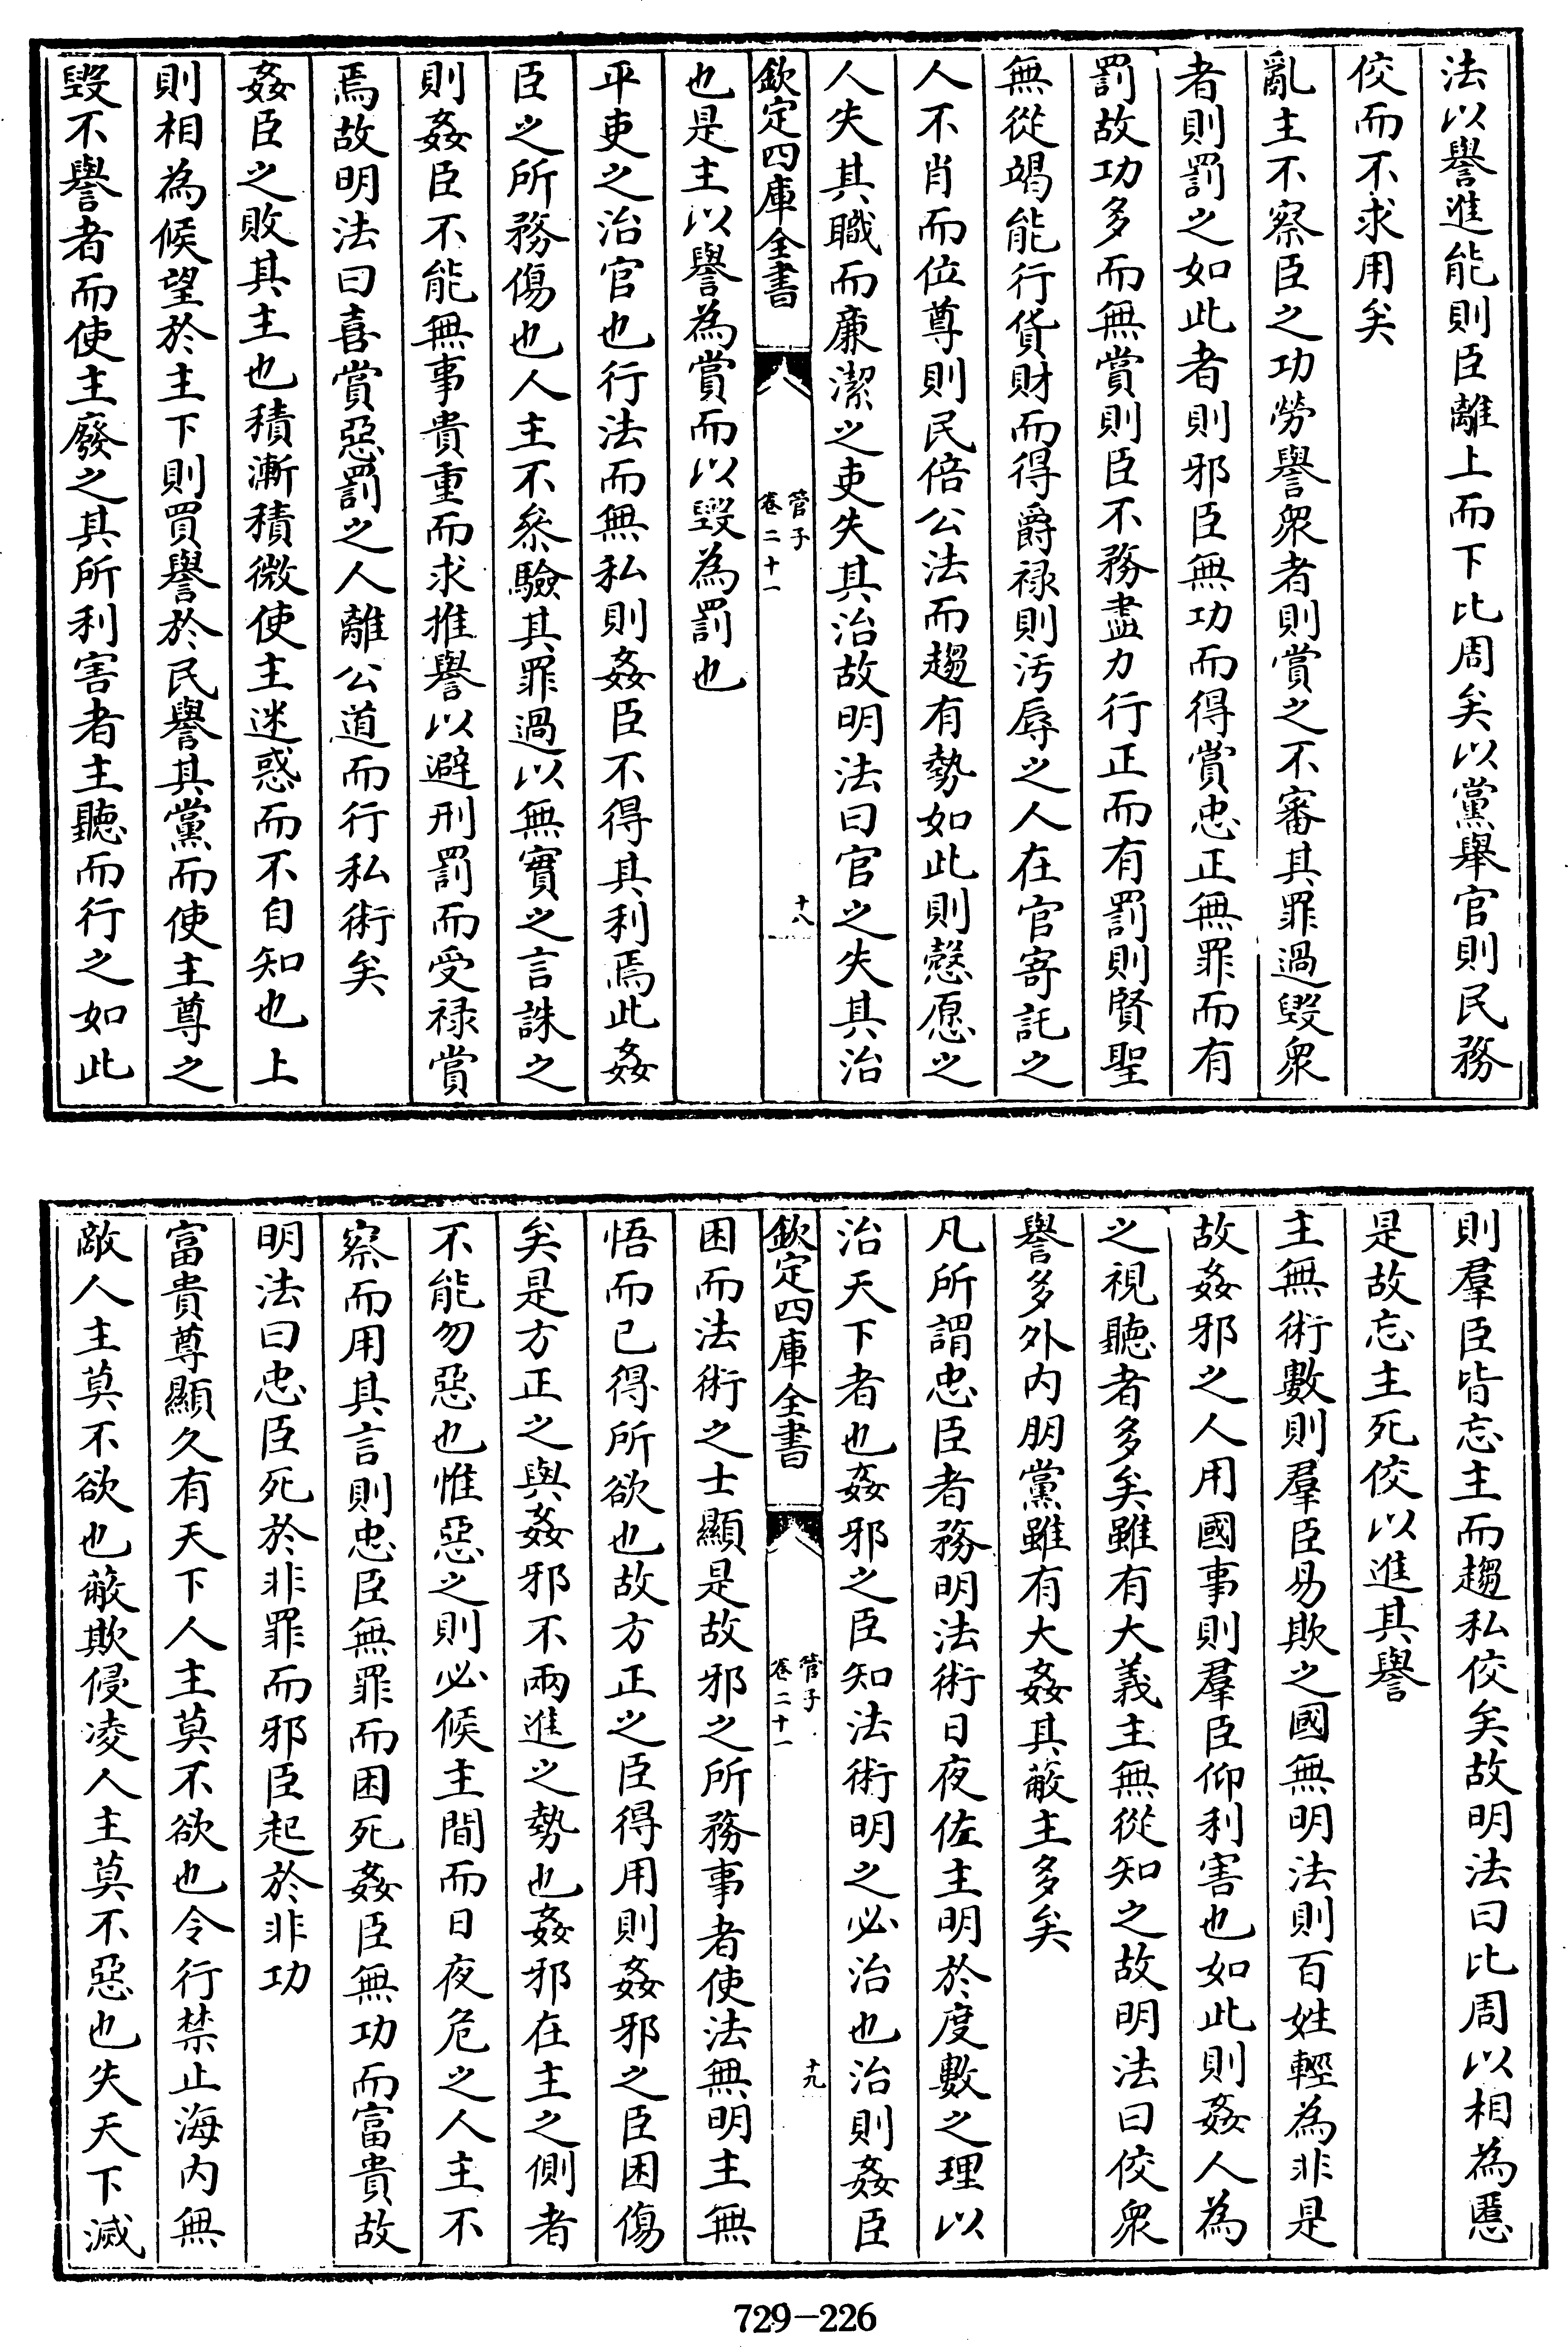 法以譽進能則臣離上而下比周矣以黨舉官則民務
佼而不求用矣
亂主不察臣之功勞譽衆者則賞之不審其罪過毀衆
者則罰之如此者則邪臣無功而得賞忠正無罪而有
罰故功多而無賞則臣不務盡力行正而有罰則賢聖
無從竭能行貨財而得爵禄則汚辱之人在官寄託之
人不肖而位尊則民倍公法而趨有勢如此則愨愿之
人失其職而廉潔之吏失其治故明法曰官之失其治
欽定四庫全書
管子
卷二十一
十八
也是主以譽為賞而以毀為罰也
平吏之治官也行法而無私則姦臣不得其利焉此姦
臣之所務傷也人主不叅驗其罪過以無實之言誅之
則姦臣不能無事貴重而求推譽以避刑罰而受禄賞
焉故明法曰喜賞惡罰之人離公道而行私術矣
姦臣之敗其主也積漸積微使主迷惑而不自知也上
則相為候望於主下則買譽於民譽其黨而使主尊之
毀不譽者而使主廢之其所利害者主聽而行之如此
則羣臣皆忘主而趨私佼矣故明法曰比周以相為慝
是故忘主死佼以進其譽
主無術數則羣臣易欺之國無明法則百姓輕為非是
故姦邪之人用國事則羣臣仰利害也如此則姦人為
之視聽者多矣雖有大義主無從知之故明法曰佼衆
譽多外内朋黨雖有大姦其蔽主多矣
凡所謂忠臣者務明法術日夜佐主明於度數之理以
治天下者也姦邪之臣知法術明之必治也治則姦臣
欽定四庫全書
管子
卷二十一
十九
困而法術之士顯是故邪之所務事者使法無明主無
悟而已得所欲也故方正之臣得用則姦邪之臣困傷
矣是方正之與姦邪不兩進之勢也姦邪在主之側者
不能勿惡也惟惡之則必候主間而日夜危之人主不
察而用其言則忠臣無罪而困死姦臣無功而富貴故
明法曰忠臣死於非罪而邪臣起於非功
富貴尊顯久有天下人主莫不欲也令行禁止海内無
敵人主莫不欲也蔽欺侵凌人主莫不惡也失天下滅
729-226